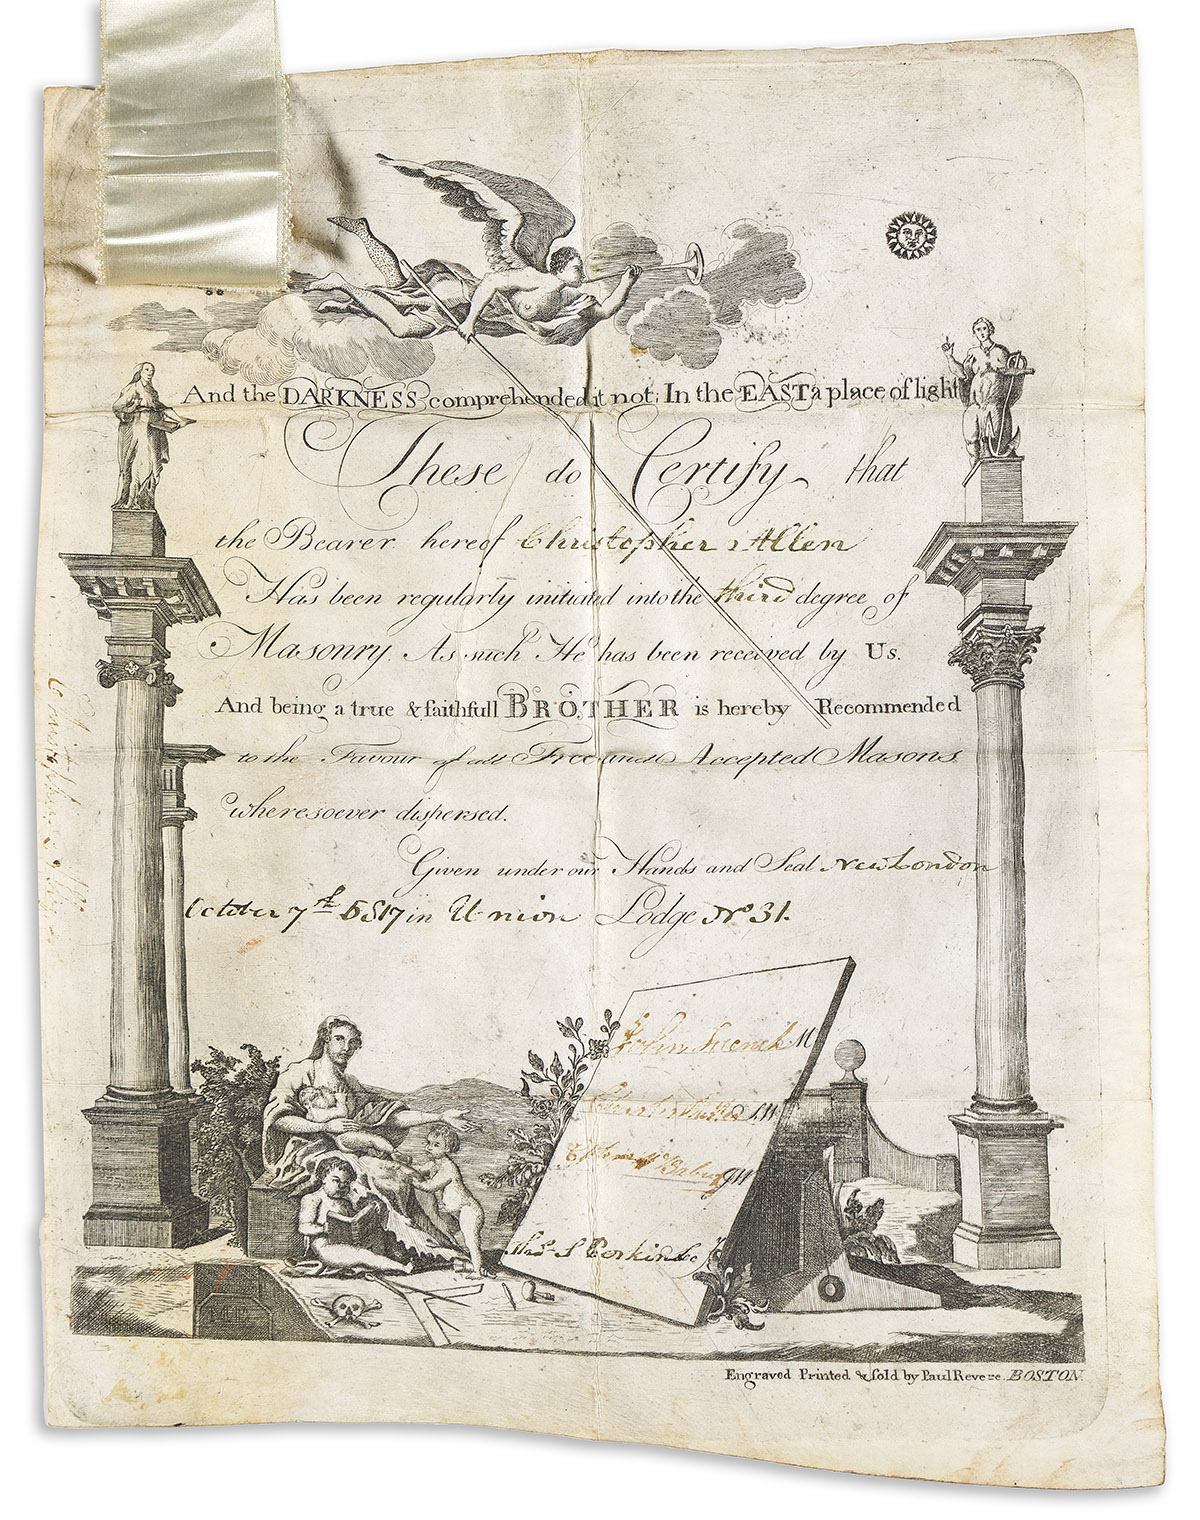 And the DARKNESS comprehended it not; In the EAST a place of light
These do Certify that
the Bearer hereof Christopher Allen
Has been regularly initiated into the third degree of
Masonry. As such He has been received by Us.
And being a true & faithfull BROTHER is hereby Recommended
to the Favour of all Free and Accepted Masons
wheresoever dispersed.
Given under our Hands and Seal New London
October 7th 5817 in Union Lodge No 31.
John French M
SW
JW
Thos S Perkins Sec
Engraved Printed & Sold by Paul Revere. BOSTON
Christopher Allen